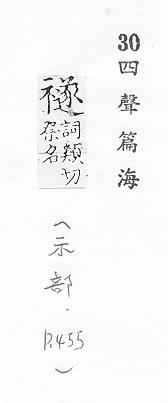 30四聲篇海
禭
詞類切
祭名
(示部．P.455)